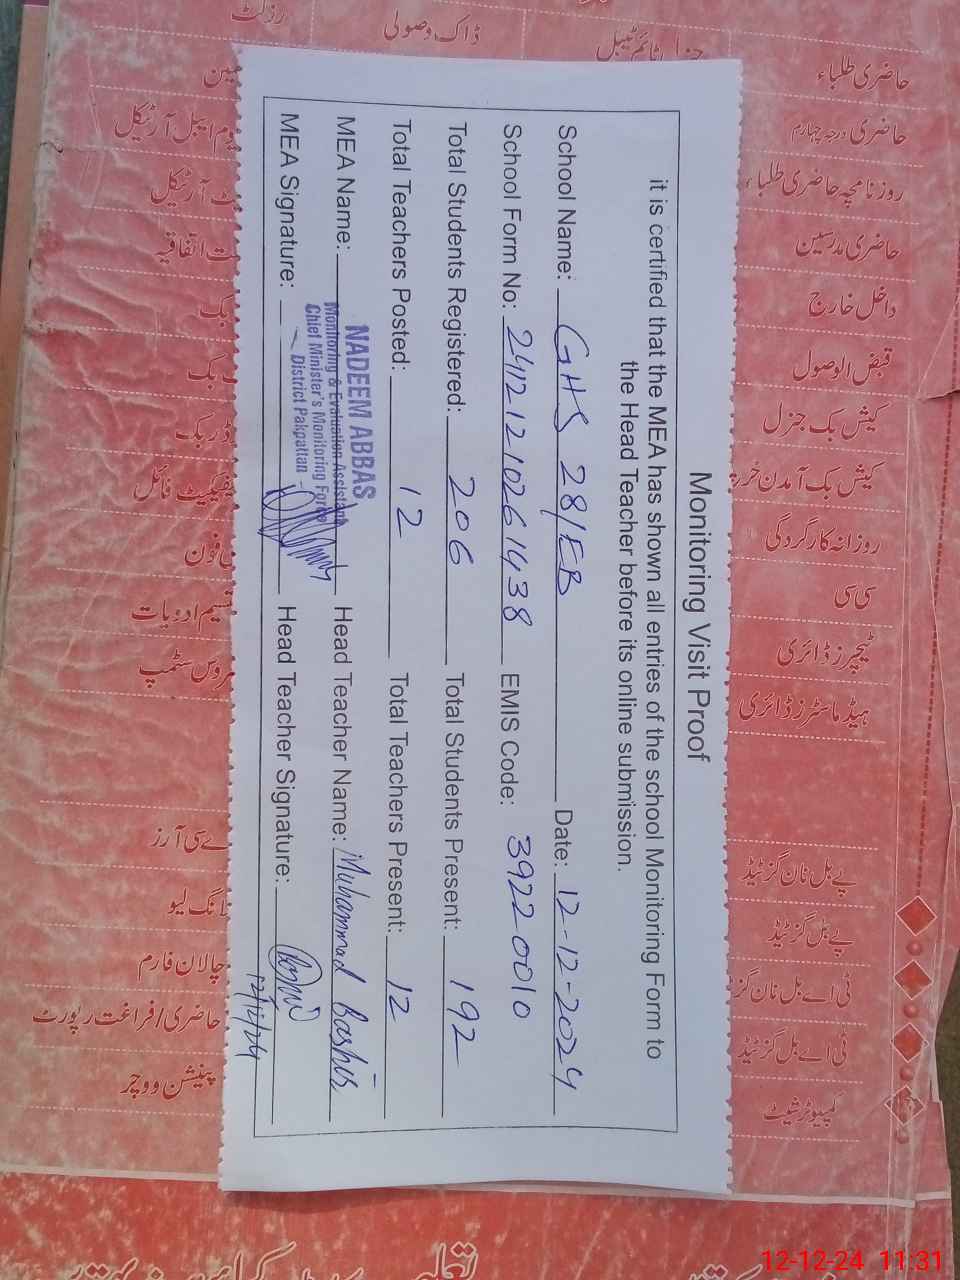 Monitoring Visit Proof
it is certified that the MEA has shown all entries of the school Monitoring Form to
the Head Teacher before its online submission.
School Name: GHS 28/EB Date: 12-12-2024
School Form No: 24121210261438 EMIS Code: 39220010
Total Students Registered: 206 Total Students Present: 192
Total Teachers Posted: 12 Total Teachers Present: 12
MEA Name: Head Teacher Name: Muhammad Bashir
NADEEM ABBAS
Monitoring & Evaluation Assistant
Chief Minister's Monitoring Force
District Pakpattan
MEA Signature: Head Teacher Signature:
12/12/24
رزلٹ
ڈاک وصولی
ٹائم ٹیبل
حاضری طلباء
حاضری درجہ چہارم
روزنامچہ حاضری طلباء
حاضری مدرسین
داخل خارج
قبض الوصول
کیش بک جنرل
کیش بک آمدن خرچ
روزانہ کارگردگی
سی سی
ٹیچرز ڈائری
ہیڈ ماسٹرز ڈائری
پے بل نان گزٹیڈ
پے بل گزٹیڈ
ٹی اے بل نان گز
ٹی اے بل گزٹیڈ
کمپیوٹر شیٹ
آرٹیکل
آرٹیکل
اتفاقیہ
بک
بک
فائل
فون
ادویات
سٹمپ
سی آرز
لیو
چالان فارم
حاضری/فراغت رپورٹ
پینشن ووچر
12-12-24 11:31